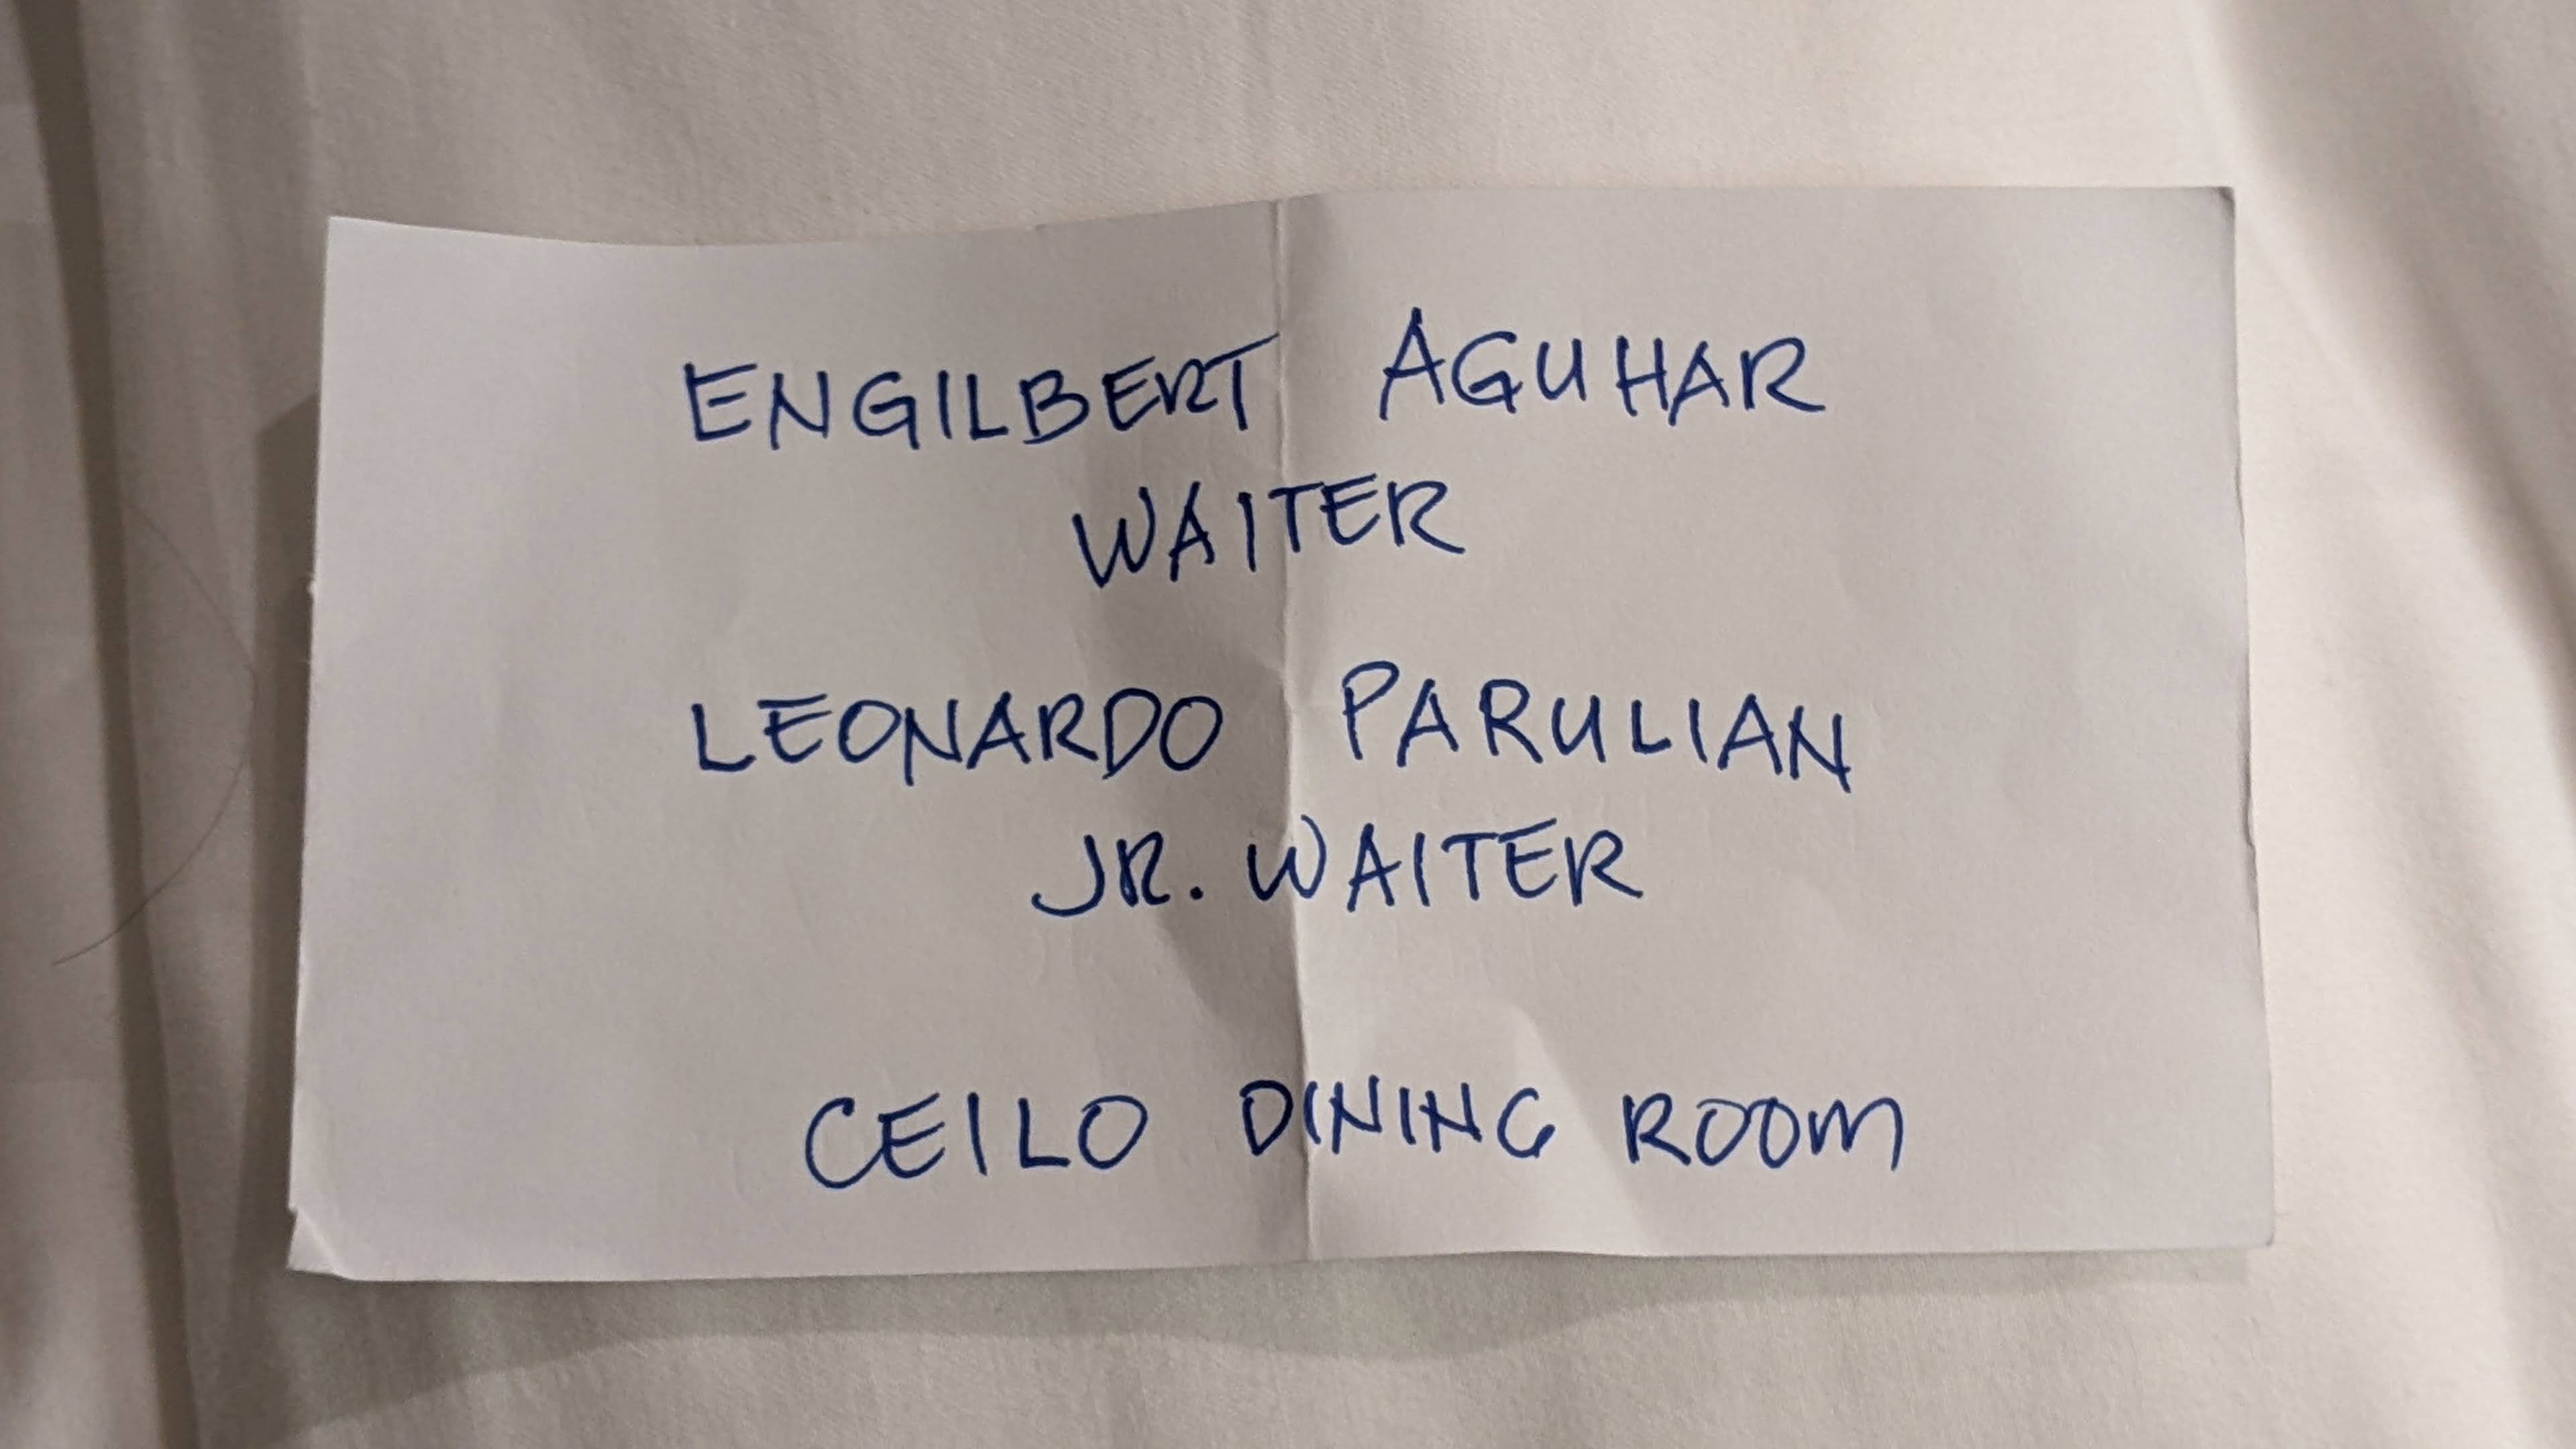 ENGILBERT AGUHAR
WAITER
LEONARDO PARULIAN
JR. WAITER
CEILO DINING ROOM